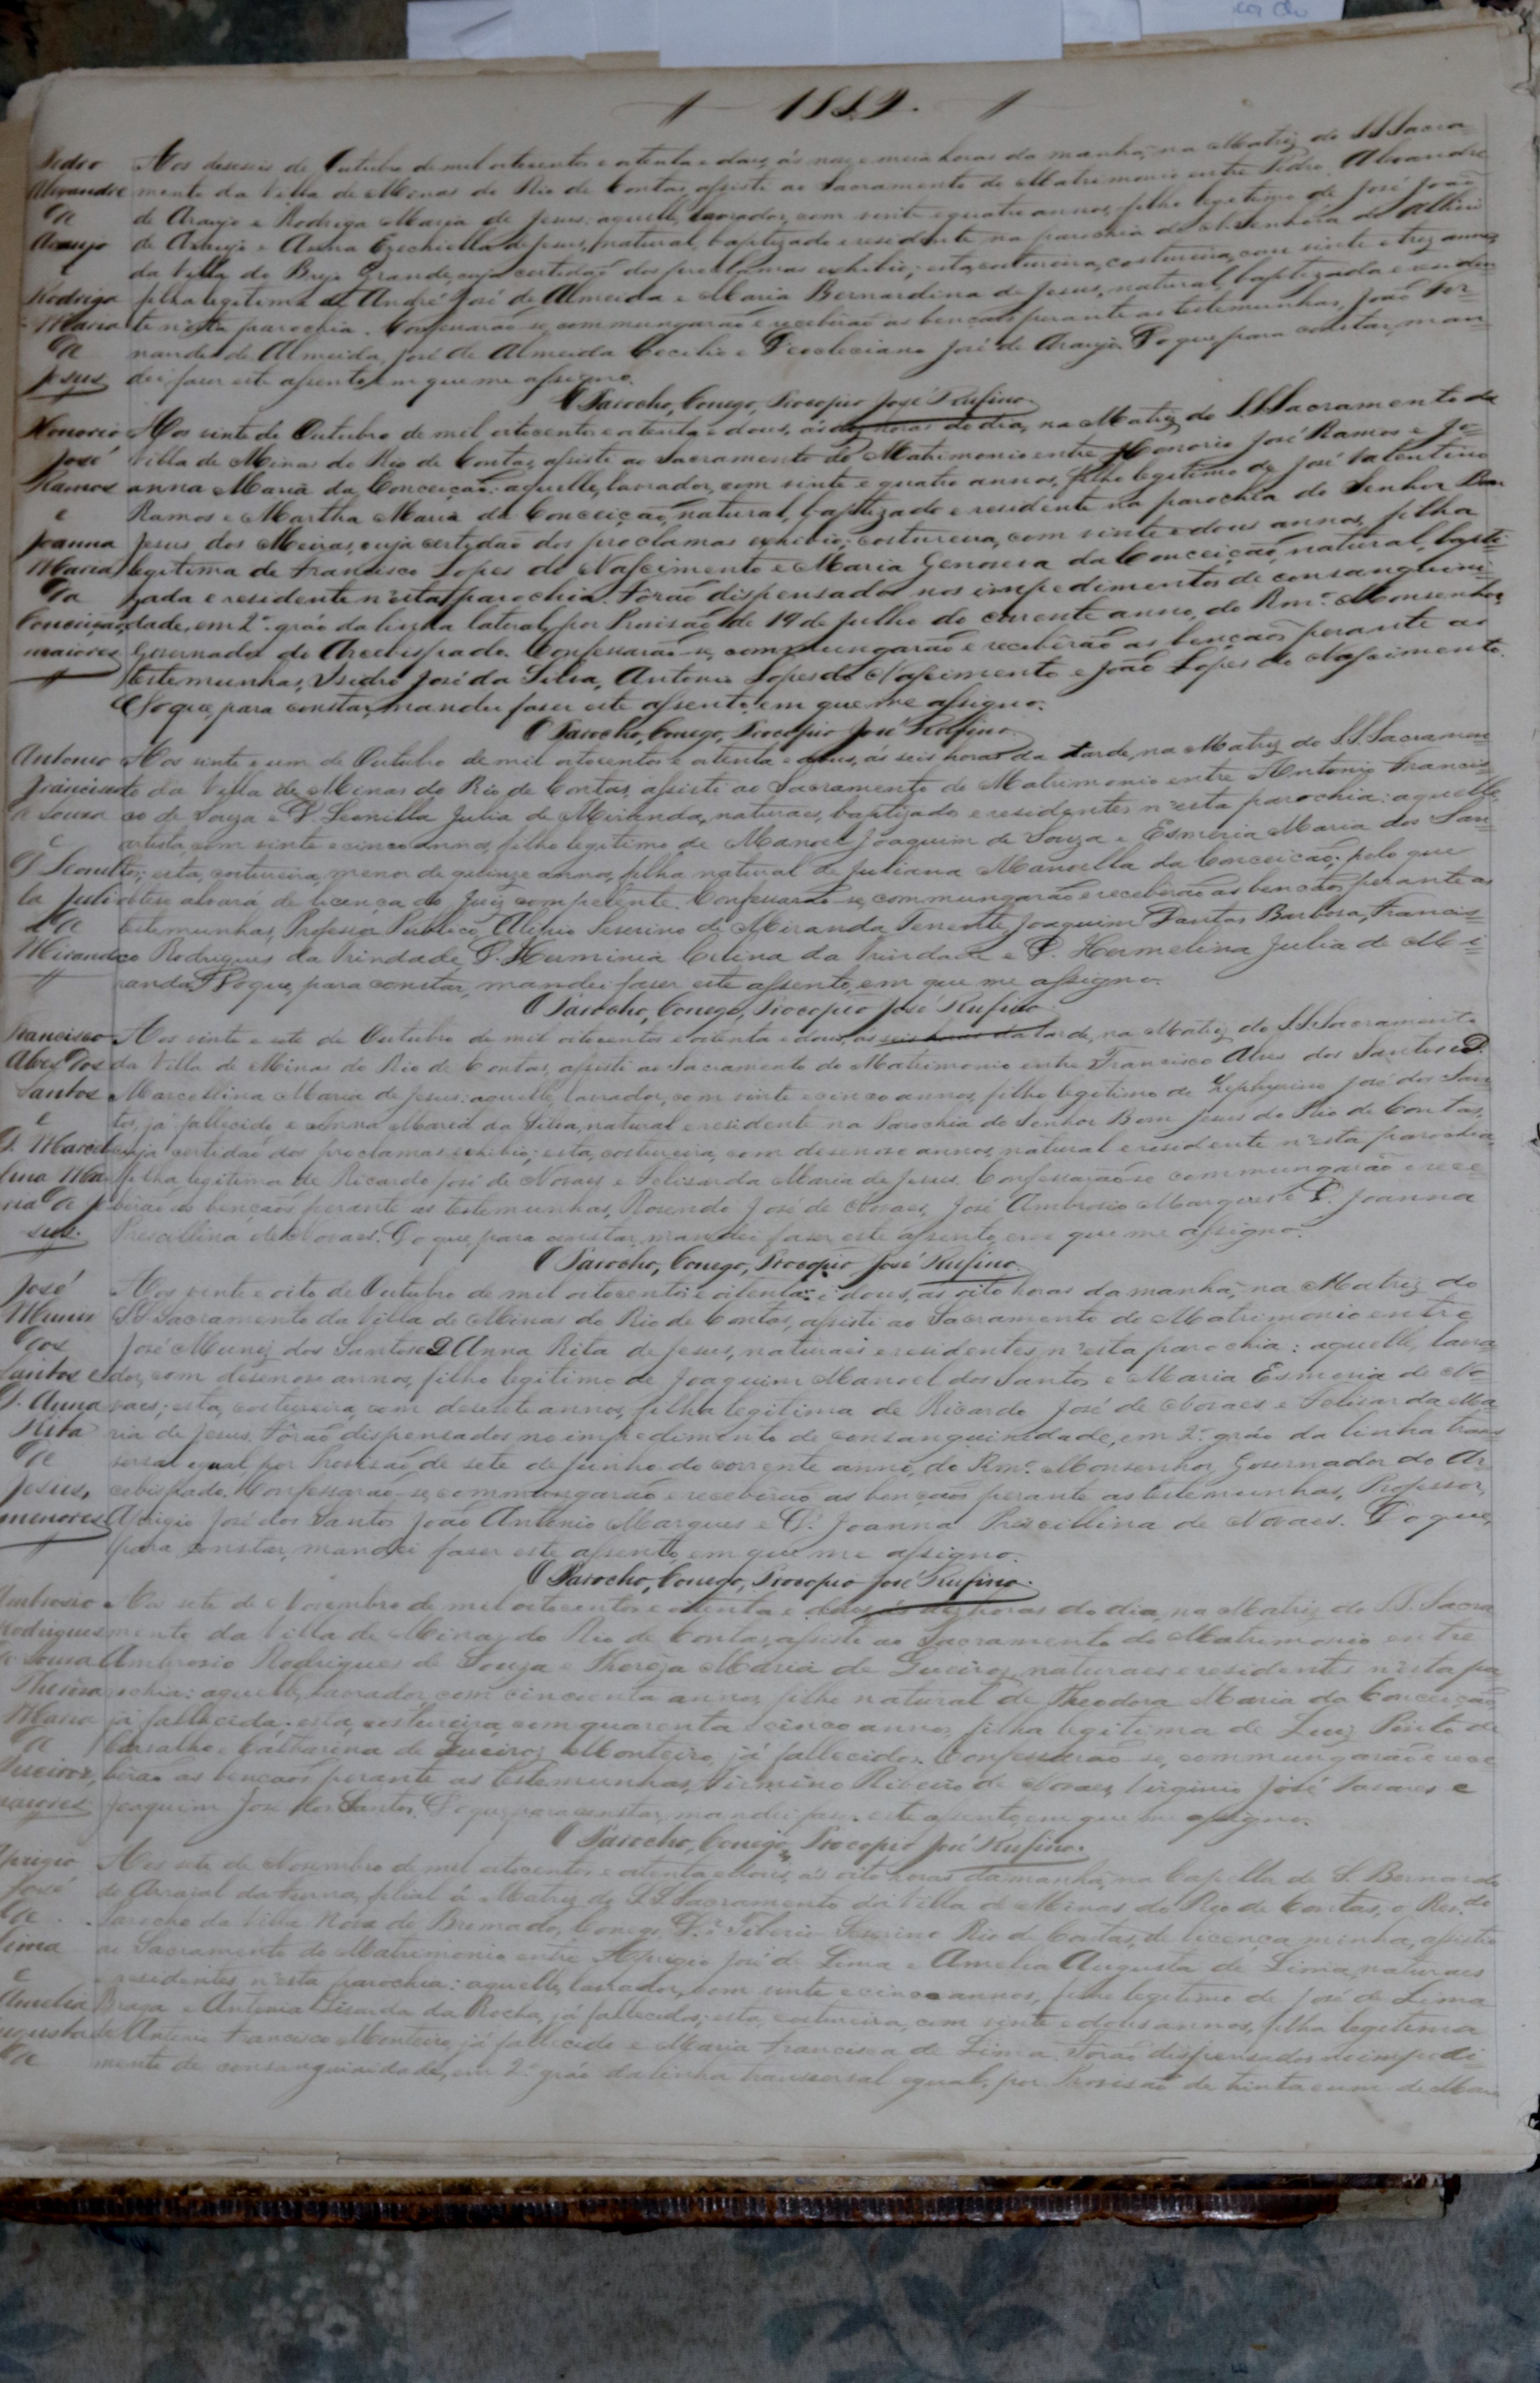 1882.
Pedro Alexandre de Araujo e Rodriga Maria de Jesus
Aos deseseis de Outubro de mil oitocentos e oitenta e dous, ás nove e meia horas da manhã, na Matriz do S.S. Sacra-
mento da Villa de Minas do Rio de Contas, assisti ao Sacramento do Matrimonio entre Pedro Alexandre
de Araujo e Rodriga Maria de Jesus: aquelle, lavrador, com vinte e quatro annos, filho legitimo de José João
de Araujo e Anna Ezechiella de Jesus, natural, baptizado e residente na parochia de N. Senhora do Allivio
da Villa do Brejo Grande, cuja certidão dos proclamas exhibio; esta, costureira, com vinte e trez annos,
filha legitima de André José de Almeida e Maria Bernardina de Jesus, natural, baptizada e residen-
te n'esta parochia. Confessarão-se, commungarão e receberão as bençãos perante as testemunhas, João Fer-
nandes de Almeida, José de Almeida Cecilio e Deocleciano José de Araujo. Do que, para constar, man-
dei faser este assento, em que me assigno.
O Parocho, Conego, Procopio José Rufino.
Honorio José Ramos e Joanna Maria da Conceição, maiores
Aos vinte de Outubro de mil oitocentos e oitenta e dous, ás dez horas do dia, na Matriz do S.S. Sacramento da
Villa de Minas do Rio de Contas, assisti ao Sacramento do Matrimonio entre Honorio José Ramos e Jo-
anna Maria da Conceição: aquelle, lavrador, com vinte e quatro annos, filho legitimo de José Valentino
Ramos e Martha Maria da Conceição, natural, baptizado e residente na parochia do Senhor Bom
Jesus dos Meiras, cuja certidão dos proclamas exhibio; costureira, com vinte e dous annos, filha
legitima de Francisco Lopes do Nascimento e Maria Genoveva da Conceição, natural, bapti-
zada e residente n'esta parochia. Fôrão dispensados nos impedimentos de consanguini-
dade, em 2º. gráo da linha lateral, por Provisão de 19 de Julho do corrente anno, do Rmº. Monsenhor,
Governador do Arcebispado. Confessarão-se, commungarão e receberão as bençãos perante as
testemunhas, Isidro José da Silva, Antonio Lopes do Nascimento e João Lopes do Nascimento.
Do que, para constar, mandei faser este assento, em que me assigno.
O Parocho, Conego, Procopio José Rufino.
Antonio Francisco de Souza e D. Leonilla Julia de Miranda
Aos vinte e um de Outubro de mil oitocentos e oitenta e dous, ás seis horas da tarde, na Matriz do S.S. Sacramen-
to da Villa de Minas do Rio de Contas, assisti ao Sacramento do Matrimonio entre Antonio Francis-
co de Souza e D. Leonilla Julia de Miranda, naturaes, baptizados e residentes n'esta parochia: aquelle,
artista, com vinte e cinco annos, filho legitimo de Manoel Joaquim de Souza e Esmeria Maria dos San-
tos; esta, costureira, menor de quinze annos, filha natural de Juliana Manoella da Conceição; pelo que
obteve alvará de licença do Juiz competente. Confessarão-se, commungarão e receberão as bençãos, perante as
testemunhas, Professor Publico, Alipio Severino de Miranda, Tenente Joaquim Dantas Barbosa, Francis-
co Rodrigues da Trindade, D. Herminia Celina da Trindade e D. Hermelina Julia de Mi-
randa. Do que, para constar, mandei faser este assento, em que me assigno.
O Parocho, Conego, Procopio José Rufino.
Francisco Alves dos Santos e D. Marcellina Maria de Jesus.
Aos vinte e sete de Outubro de mil oitocentos e oitenta e dous, ás seis horas da tarde, na Matriz do S.S. Sacramento
da Villa de Minas do Rio de Contas, assisti ao Sacramento do Matrimonio entre Francisco Alves dos Santos e D.
Marcellina Maria de Jesus: aquelle, lavrador, com vinte e cinco annos, filho legitimo de Zephyrino José dos San-
tos, já fallecido, e Anna Maria da Silva, natural e residente na Parochia do Senhor Bom Jesus do Rio de Contas,
cuja certidão dos proclamas exhibio; esta, costureira, com desenove annos, natural e residente n'esta parochia,
filha legitima de Ricardo José de Novaes e Felisarda Maria de Jesus. Confessarão-se commungarão e rece-
berão as bençãos perante as testemunhas, Rosendo José de Novaes, José Ambrosio Marques e D. Joanna
Prescillina de Novaes. Do que, para constar, mandei faser este assento, em que me assigno.
O Parocho, Conego, Procopio José Rufino.
José Muniz dos Santos e D. Anna Rita de Jesus, menores
Aos vinte e oito de Outubro de mil oitocentos e oitenta e dous, ás oito horas da manhã, na Matriz do
S.S. Sacramento da Villa de Minas do Rio de Contas, assisti ao Sacramento do Matrimonio entre
José Muniz dos Santos e D. Anna Rita de Jesus, naturaes e residentes n'esta parochia: aquelle, lavra-
dor, com desenove annos, filho legitimo de Joaquim Manoel dos Santos e Maria Esmeria de No-
vaes; esta, costureira, com desesete annos, filha legitima de Ricardo José de Novaes e Felisarda Ma-
ria de Jesus. Fôrão dispensados no impedimento de consanguinidade, em 2º. gráo da linha trans-
versal egual, por Provisão de sete de Junho do corrente anno, do Rmº. Monsenhor, Governador do Ar-
cebispado. Confessarão-se, commungarão e receberão as bençãos perante as testemunhas, Professor,
Aprigio José dos Santos, João Antonio Marques e D. Joanna Priscillina de Novaes. Do que,
para constar, mandei faser este assento, em que me assigno.
O Parocho, Conego, Procopio José Rufino.
Ambrosio Rodrigues de Souza Thereza Maria de Queiroz, maiores
Aos sete de Novembro de mil oitocentos e oitenta e dous, ás dez horas do dia, na Matriz do S.S. Sacra-
mento da Villa de Minas do Rio de Contas, assisti ao Sacramento do Matrimonio entre
Ambrosio Rodrigues de Souza e Thereza Maria de Queiroz, naturaes e residentes n'esta pa-
rochia: aquelle, lavrador, com cincoenta annos, filho natural de Theodora Maria da Conceição,
já fallecida; esta, costureira, com quarenta e cinco annos, filha legitima de Luiz Pinto de
Carvalho e Catharina de Queiroz Monteiro, já fallecidos. Confessarão-se, commungarão e rece-
berão as bençãos perante as testemunhas, Firmino Ribeiro de Novaes, Virginio José Tavares e
Joaquim José dos Santos. Do que, para constar, mandei faser este assento, em que me assigno.
O Parocho, Conego, Procopio José Rufino.
Aprigio José de Lima e Amelia Augusta de
Aos sete de Novembro de mil oitocentos e oitenta e dous, ás oito horas da manhã, na Capella de S. Bernardo
do Arraial da Furna, filial á Matriz do S.S. Sacramento da Villa de Minas do Rio de Contas, o Rev.do
Parocho da Villa Nova do Brumado, Conego Dr. Tiberio Severino Rio de Contas, de licença minha, assistio
ao Sacramento do Matrimonio entre Aprigio José de Lima e Amelia Augusta de Lima, naturaes
e residentes n'esta parochia: aquelle, lavrador, com vinte e cinco annos, filho legitimo de José de Lima
Braga e Antonia Lisarda da Rocha, já fallecidos; esta, costureira, com vinte e dous annos, filha legitima
de Antonio Francisco Monteiro, já fallecido e Maria Francisca de Lima. Fôrão dispensados no impedi-
mento de consanguinidade, em 2º. gráo da linha transversal egual, por Provisão de trinta e um de Maio